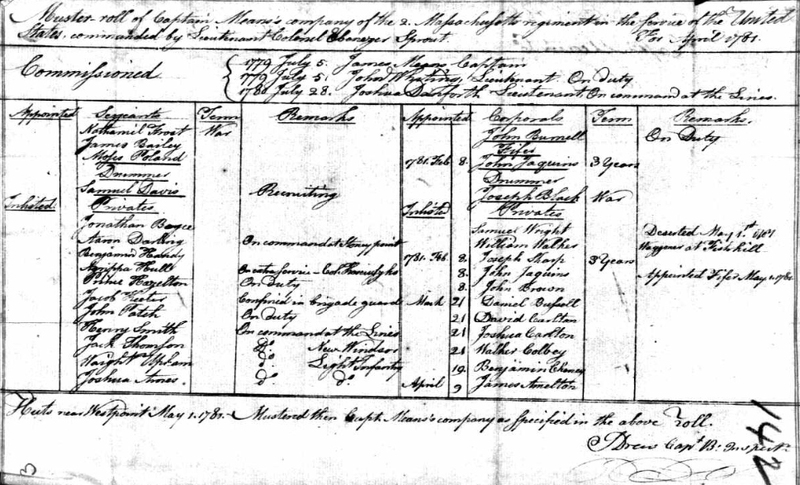 Muster-roll of Captain Means's company of the 2. Massachusetts regiment in the Service of the United
States, commanded by Lieutenant Colonel Ebenezer Sprout. For April 1781.
Commissioned
1779 July 5. James Means Captain
1779 July 5. John Whiting, Lieutenant On duty
1780 July 28. Joshua Danforth Lieutenant On command at the Lines.
Appointed Sergeants Term Remarks Appointed Corporals Term Remarks.
Nathaniel Frost War John Burnell On Duty
James Bailey Fifer
Moses Poland 1781. Feb 8. John Jaquins 3 Years
Drummer Drummer
Samuel Davis Recruiting Joseph Black War
Inlisted Privates Inlisted Privates
Jonathan Samuel Wright Deserted May 1st 1781
Aaron Darling On command at Stony point William Walker Waggoner at Fish kill
Benjamin Hardy 1781. Feb 8. Joseph Sharp 3 Years
Agrippa Hull On extra servis - Col. 8. John Jaquins Appointed Fifer May 1. 1781
Hazelton On Duty 8. John Brown
Jacob Confined in brigade guard March 21 Daniel
John Patch On duty 21 David Carlton
Henry Smith On command at the Lines 21 Joshua Carlton
Jack Thomson Do. New Windsor 21 Walker Colbey
Upham Do. Light Infantry 19 Benjamin
Joshua Ames. do do. April 9 James
Huts near Westpoint May 1. 1781 - Mustered then Capt. Means's company as specified in the above Roll.
J Drew Capt. B: Inspectr.
142
3